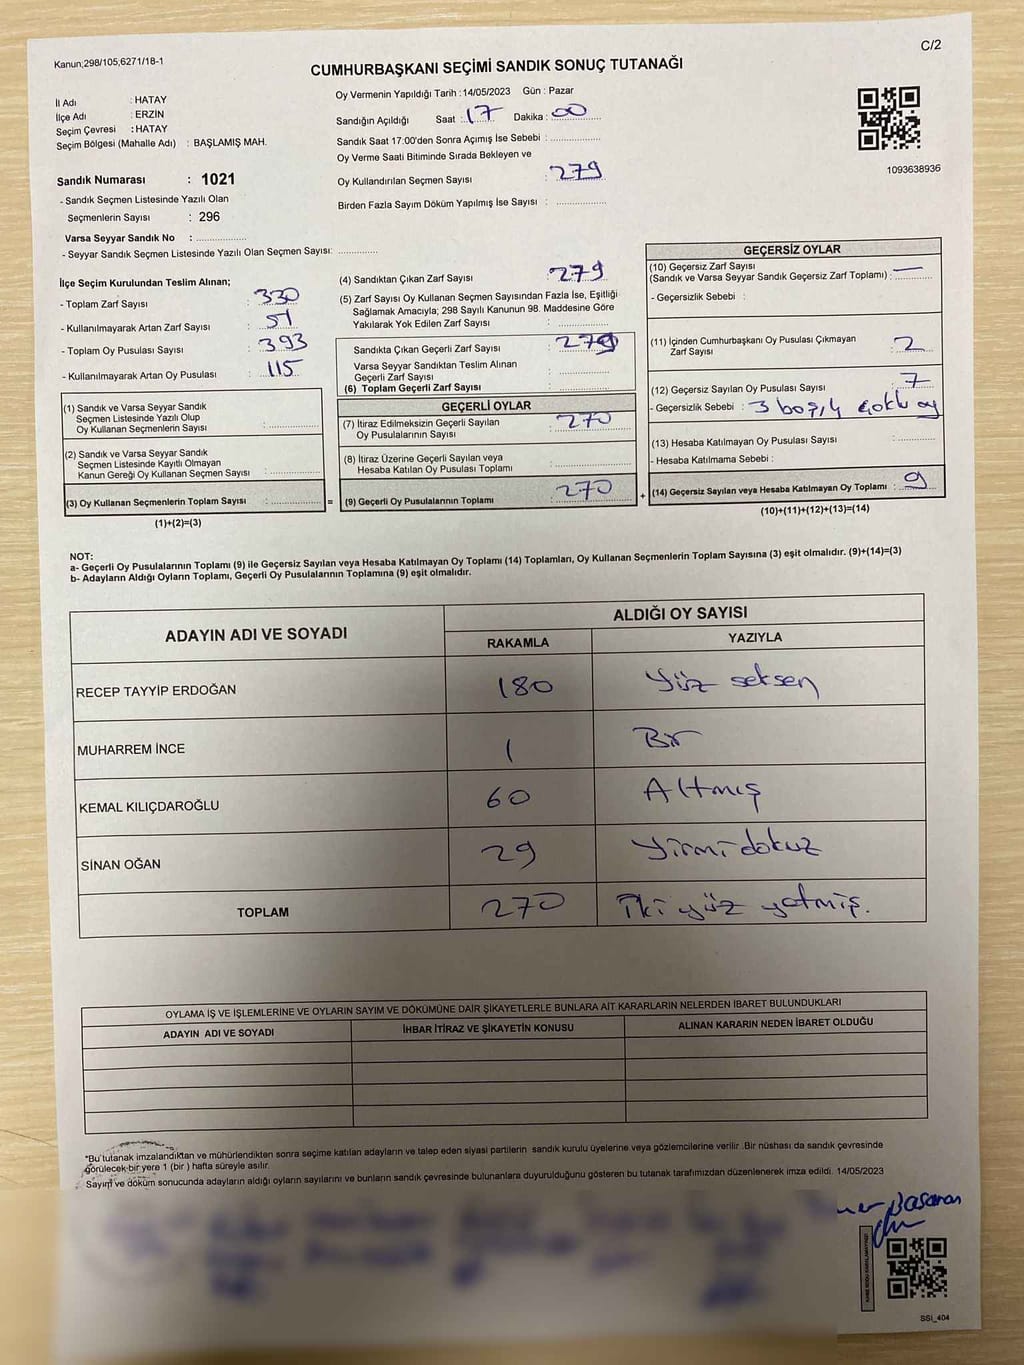 C/2
Kanun;298/105;6271/18-1
CUMHURBAŞKANI SEÇİMİ SANDIK SONUÇ TUTANAĞI
İl Adı : HATAY
İlçe Adı : ERZİN
Seçim Çevresi : HATAY
Seçim Bölgesi (Mahalle Adı) : BAŞLAMIŞ MAH.
Sandık Numarası : 1021
- Sandık Seçmen Listesinde Yazılı Olan
Seçmenlerin Sayısı : 296
Varsa Seyyar Sandık No :
- Seyyar Sandık Seçmen Listesinde Yazılı Olan Seçmen Sayısı:
Oy Vermenin Yapıldığı Tarih : 14/05/2023 Gün : Pazar
Sandığın Açıldığı Saat : 17 Dakika : 00
Sandık Saat 17:00'den Sonra Açımış İse Sebebi :
Oy Verme Saati Bitiminde Sırada Bekleyen ve
Oy Kullandırılan Seçmen Sayısı : 279
Birden Fazla Sayım Döküm Yapılmış İse Sayısı :
1093638936
İlçe Seçim Kurulundan Teslim Alınan;
- Toplam Zarf Sayısı : 330
- Kullanılmayarak Artan Zarf Sayısı : 51
- Toplam Oy Pusulası Sayısı : 393
- Kullanılmayarak Artan Oy Pusulası : 115
(1) Sandık ve Varsa Seyyar Sandık
Seçmen Listesinde Yazılı Olup
Oy Kullanan Seçmenlerin Sayısı :
(2) Sandık ve Varsa Seyyar Sandık
Seçmen Listesinde Kayıtlı Olmayan
Kanun Gereği Oy Kullanan Seçmen Sayısı :
(3) Oy Kullanan Seçmenlerin Toplam Sayısı : =
(1)+(2)=(3)
(4) Sandıktan Çıkan Zarf Sayısı : 279
(5) Zarf Sayısı Oy Kullanan Seçmen Sayısından Fazla İse, Eşitliği
Sağlamak Amacıyla; 298 Sayılı Kanunun 98. Maddesine Göre
Yakılarak Yok Edilen Zarf Sayısı :
Sandıkta Çıkan Geçerli Zarf Sayısı : 279
Varsa Seyyar Sandıktan Teslim Alınan
Geçerli Zarf Sayısı :
(6) Toplam Geçerli Zarf Sayısı :
GEÇERLİ OYLAR
(7) İtiraz Edilmeksizin Geçerli Sayılan
Oy Pusulalarının Sayısı : 270
(8) İtiraz Üzerine Geçerli Sayılan veya
Hesaba Katılan Oy Pusulası Toplamı :
(9) Geçerli Oy Pusulalarının Toplamı : 270 +
GEÇERSİZ OYLAR
(10) Geçersiz Zarf Sayısı
(Sandık ve Varsa Seyyar Sandık Geçersiz Zarf Toplamı) : —
- Geçersizlik Sebebi :
(11) İçinden Cumhurbaşkanı Oy Pusulası Çıkmayan
Zarf Sayısı : 2
(12) Geçersiz Sayılan Oy Pusulası Sayısı : 7
- Geçersizlik Sebebi : 3 boş, 4 çoklu oy
(13) Hesaba Katılmayan Oy Pusulası Sayısı :
- Hesaba Katılmama Sebebi :
(14) Geçersiz Sayılan veya Hesaba Katılmayan Oy Toplamı : 9
(10)+(11)+(12)+(13)=(14)
NOT:
a- Geçerli Oy Pusulalarının Toplamı (9) ile Geçersiz Sayılan veya Hesaba Katılmayan Oy Toplamı (14) Toplamları, Oy Kullanan Seçmenlerin Toplam Sayısına (3) eşit olmalıdır. (9)+(14)=(3)
b- Adayların Aldığı Oyların Toplamı, Geçerli Oy Pusulalarının Toplamına (9) eşit olmalıdır.
ADAYIN ADI VE SOYADI ALDIĞI OY SAYISI
RAKAMLA YAZIYLA
RECEP TAYYİP ERDOĞAN 180 Yüz seksen
MUHARREM İNCE 1 Bir
KEMAL KILIÇDAROĞLU 60 Altmış
SİNAN OĞAN 29 Yirmi dokuz
TOPLAM 270 İki yüz yetmiş.
OYLAMA İŞ VE İŞLEMLERİNE VE OYLARIN SAYIM VE DÖKÜMÜNE DAİR ŞİKAYETLERLE BUNLARA AİT KARARLARIN NELERDEN İBARET BULUNDUKLARI
ADAYIN ADI VE SOYADI İHBAR İTİRAZ VE ŞİKAYETİN KONUSU ALINAN KARARIN NEDEN İBARET OLDUĞU
*Bu tutanak imzalandıktan ve mühürlendikten sonra seçime katılan adayların ve talep eden siyasi partilerin sandık kurulu üyelerine veya gözlemcilerine verilir .Bir nüshası da sandık çevresinde
görülecek bir yere 1 (bir ) hafta süreyle asılır.
Sayım ve döküm sonucunda adayların aldığı oyların sayılarını ve bunların sandık çevresinde bulunanlara duyurulduğunu gösteren bu tutanak tarafımızdan düzenlenerek imza edildi. 14/05/2023
Başaran
SSI_404